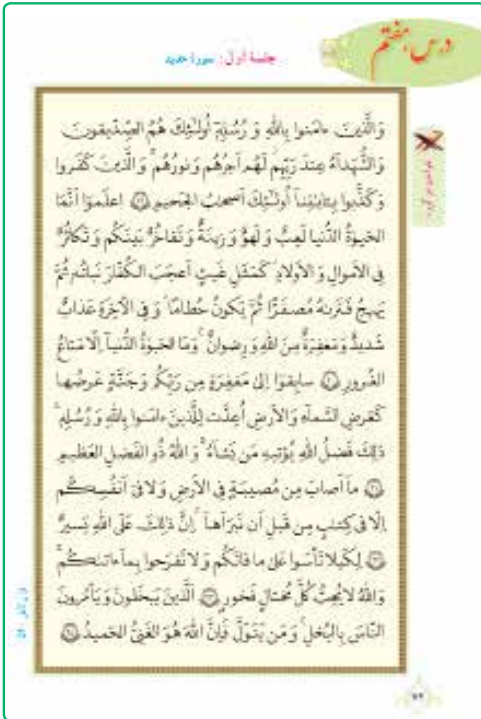 درس هفتم
جلسهٔ اول: سورهٔ حدید
وَالَّذینَ ءامَنوا بِاللهِ وَ رُسُلِهٖ اُولٰئِكَ هُمُ الصِّدّیقونَ
وَالشُّهَدآءُ عِندَ رَبِّهِم لَهُم اَجرُهُم وَ نورُهُم وَالَّذینَ كَفَروا
وَ كَذَّبوا بِـٔایاتِنا اُولٰئِكَ اَصحابُ الجَحیمِ ۱۹ اِعلَموا اَنَّمَا
الحَیوٰةُ الدُّنیا لَعِبٌ وَ لَهوٌ وَ زینَةٌ وَ تَفاخُرٌ بَینَكُم وَ تَكاثُرٌ
فِی الاَموالِ وَ الاَولادِ كَمَثَلِ غَیثٍ اَعجَبَ الكُفّارَ نَباتُهٗ ثُمَّ
یَهیجُ فَتَراهُ مُصفَرًّا ثُمَّ یَكونُ حُطامًا وَ فِی الآخِرَةِ عَذابٌ
شَدیدٌ وَ مَغفِرَةٌ مِنَ اللهِ وَ رِضوانٌ وَ مَا الحَیوٰةُ الدُّنیا اِلّا مَتاعُ
الغُرورِ ۲۰ سابِقوا اِلیٰ مَغفِرَةٍ مِن رَبِّكُم وَ جَنَّةٍ عَرضُها
كَعَرضِ السَّمآءِ وَ الاَرضِ اُعِدَّت لِلَّذینَ ءامَنوا بِاللهِ وَ رُسُلِهٖ
ذٰلِكَ فَضلُ اللهِ یُؤتیهِ مَن یَشآءُ وَ اللهُ ذُو الفَضلِ العَظیمِ
۲۱ ما اَصابَ مِن مُصیبَةٍ فِی الاَرضِ وَ لا فی اَنفُسِكُم
اِلّا فی كِتابٍ مِن قَبلِ اَن نَبرَاَها اِنَّ ذٰلِكَ عَلَی اللهِ یَسیرٌ
۲۲ لِكَیلا تَأسَوا عَلیٰ ما فاتَكُم وَ لا تَفرَحوا بِما ءاتاكُم
وَ اللهُ لا یُحِبُّ كُلَّ مُختالٍ فَخورٍ ۲۳ اَلَّذینَ یَبخَلونَ وَ یَأمُرونَ
النّاسَ بِالبُخلِ وَ مَن یَتَوَلَّ فَاِنَّ اللهَ هُوَ الغَنِیُّ الحَمیدُ ۲۴